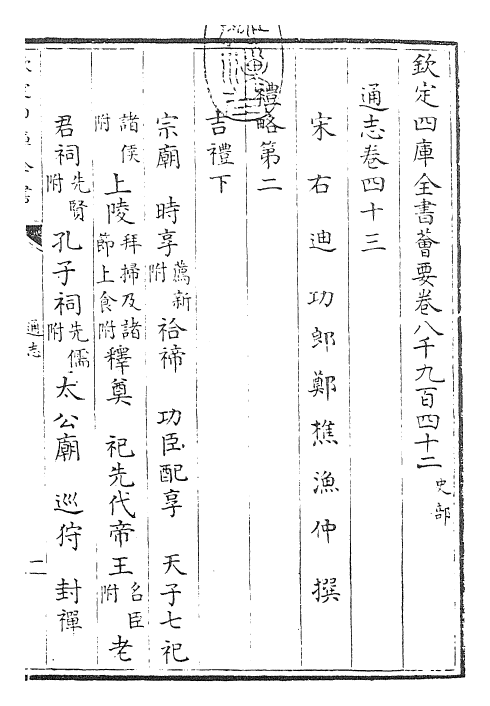 欽定四庫全書薈要卷八千九百四十二 史部
通志卷四十三
宋右迪功郎鄭樵漁仲撰
禮略第二
吉禮下
宗廟 時享薦新附 祫禘 功臣配享 天子七祀
諸侯附 上陵拜掃及諸節上食附 釋奠 祀先代帝王名臣附 老
君祠先賢附 孔子祠先儒附 太公廟 巡狩 封禪
通志
二